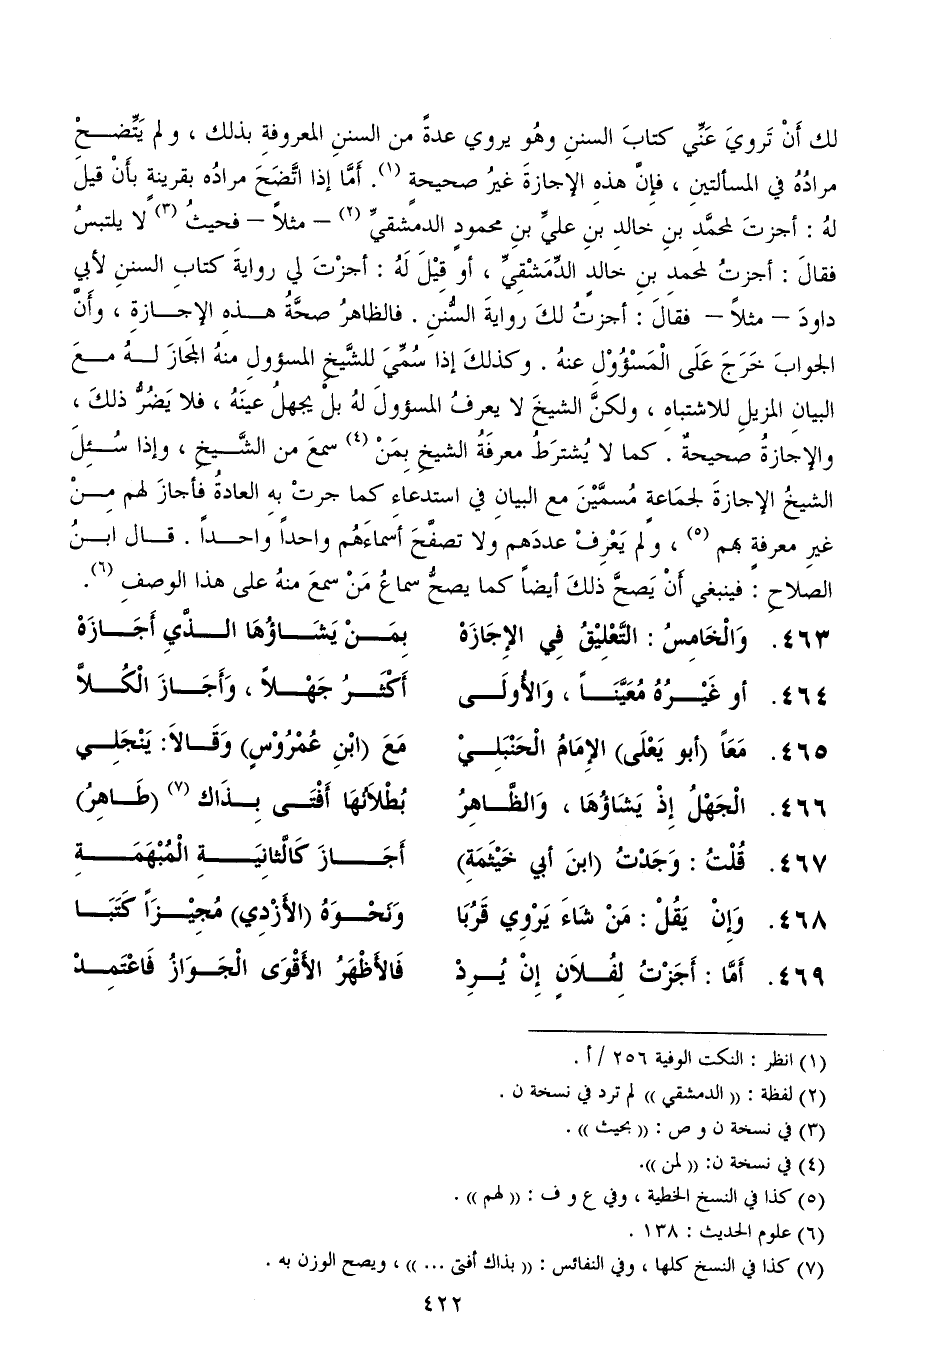 لك أنْ تَرويَ عَنِّي كتابَ السننِ وهُو يروي عدةً من السننِ المعروفة بذلك ، و لم يَتَّضحْ
مرادُهُ في المسألتينِ ، فإنَّ هذه الإجازةَ غيرُ صحيحةٍ (١). أمَّا إذا اتَّضَحَ مراده بقرينةٍ بأنْ قيلَ
لهُ : أجزتَ لمحمَّدِ بنِ خالدِ بنِ عليِّ بنِ محمودٍ الدمشقيِّ (٢) – مثلاً – فحيثُ (٣) لا يلتبسُ
فقالَ : أجزتُ لمحمدِ بنِ خالدٍ الدِّمَشْقِيِّ ، أو قِيْلَ لَهُ : أجزْتَ لي روايةَ كتابِ السننِ لأبي
داودَ – مثلاً – فقالَ : أجزتُ لكَ روايةَ السُّننِ . فالظاهرُ صحَّةُ هذه الإجازة ، وأنَّ
الجوابَ خَرَجَ عَلَى الْمَسْؤُوْلِ عنهُ . وكذلكَ إذا سُمِّيَ للشَّيخِ المسؤولِ منهُ المُجَازَ لهُ معَ
البيان المزيلِ للاشتباهِ ، ولكنَّ الشيخَ لا يعرفُ المسؤولَ لهُ بلْ يجهلُ عينَهُ ، فلا يَضُرُّ ذلكَ ،
والإجازةُ صحيحةٌ . كما لا يُشترطُ معرفةُ الشيخِ بِمَنْ (٤) سمعَ من الشَّيخِ ، وإذا سُئِلَ
الشيخُ الإجازةَ لجماعةٍ مُسمَّيْنَ مع البيانِ في استدعاءٍ كما جرتْ به العادةُ فأجازَ لهم مِنْ
غيرِ معرفةٍ بهم (٥) ، و لم يَعْرِفْ عددَهم ولا تصفَّحَ أسماءَهُم واحداً واحداً . قال ابنُ
الصلاحِ : فينبغي أنْ يَصحَّ ذلكَ أيضاً كما يصحُّ سماعُ مَنْ سمعَ منهُ على هذا الوصفِ (٦).
٤٦٣. وَالْخَامِسُ : التَّعْلِيْقُ فِي الإِجَازَهْ بِمَنْ يَشَاؤُهَا الذَّي أَجَازَهْ
٤٦٤. أو غَيْرُهُ مُعَيَّنَاً ، وَالأُولَى أَكْثَرُ جَهْلاً ، وَأَجَازَ الْكُلاَّ
٤٦٥. مَعَاً (أبو يَعْلَى) الإِمَامُ الْحَنْبَلِيْ مَعَ (ابْنِ عُمْرُوْسٍ) وَقَالاَ: يَنْجَلِي
٤٦٦. الْجَهْلُ إذْ يَشَاؤُهَا ، وَالظَّاهِرُ بُطْلاَنُهَا أَفْتَى بِذَاكَ (٧) (طَاهِرُ)
٤٦٧. قُلْتُ : وَجَدْتُ (ابنَ أبي خَيْثَمَةِ) أَجَازَ كَالْثانيَةِ الْمُبْهَمَةِ
٤٦٨. وَإِنْ يَقُلْ : مَنْ شَاءَ يَرْوِي قَرُبَا وَنَحْوَهُ (الأَزْدِي) مُجِيْزَاً كَتَبَا
٤٦٩. أَمَّا : أَجَزْتُ لِفُلاَنٍ إنْ يُرِدْ فَالأَظْهَرُ الأَقْوَى الْجَوَازُ فَاعْتَمِدْ
(١) انظر : النكت الوفية ٢٥٦ / أ .
(٢) لفظة : (( الدمشقي )) لم ترد في نسخة ن .
(٣) في نسخة ن و ص : (( بحيث )) .
(٤) في نسخة ن: (( لمن )).
(٥) كذا في النسخ الخطية ، وفي ع و ف : (( لهم )) .
(٦) علوم الحديث : ١٣٨ .
(٧) كذا في النسخ كلها ، وفي النفائس : (( بذاك أفتى ... )) ، ويصح الوزن به .
٤٢٢